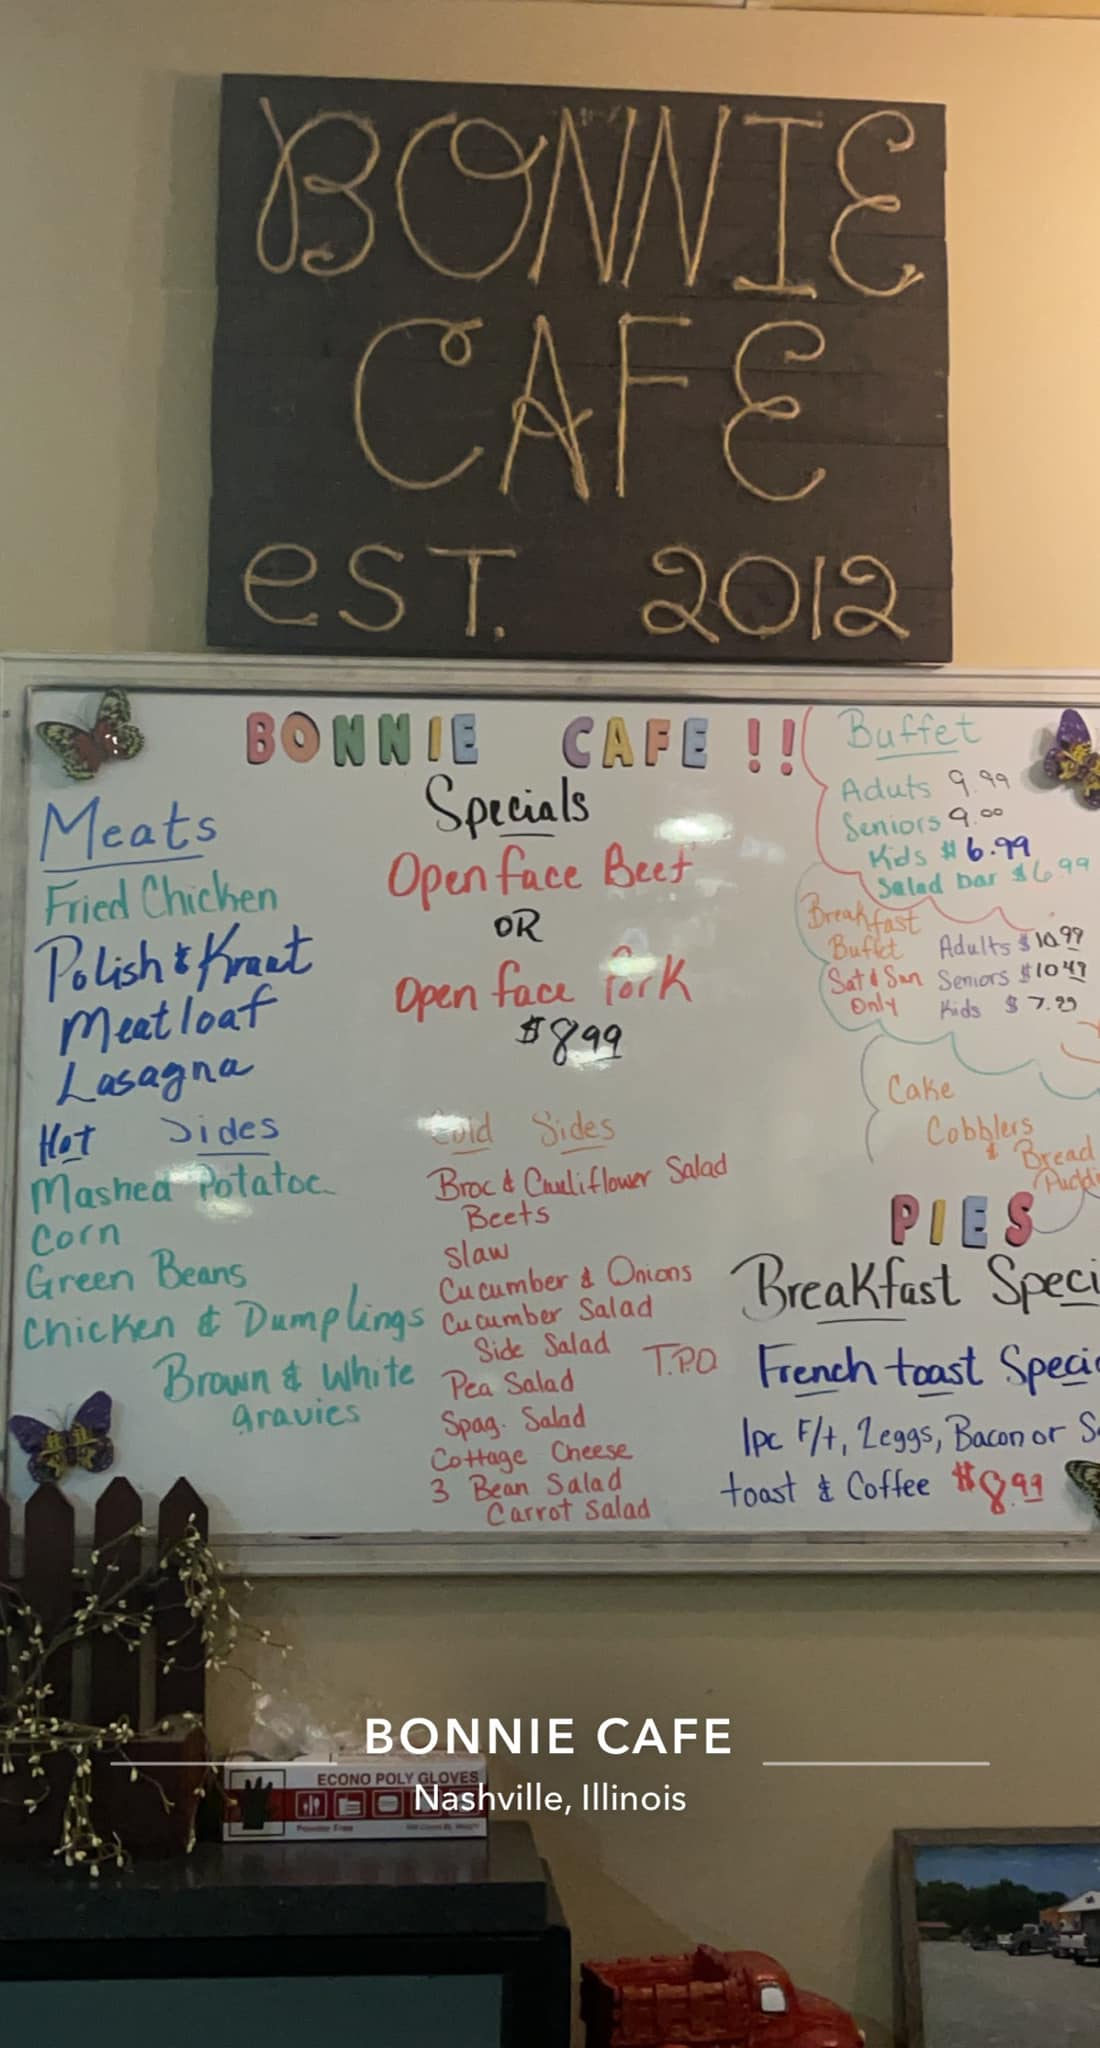 BONNIE
CAFE
eST. 2012
BONNIE CAFE !!
Meats
Fried Chicken
Polish & Kraut
Meatloaf
Lasagna
Hot Sides
Mashed Potatoe
Corn
Green Beans
Chicken & Dumplings
Brown & White
gravies
Specials
Open face Beef
OR
Open face Pork
$8.99
Cold Sides
Broc & Cauliflower Salad
Beets
Slaw
Cucumber & Onions
Cucumber Salad
Side Salad
T.P.O
Pea Salad
Spag. Salad
Cottage Cheese
3 Bean Salad
Carrot Salad
Buffet
Aduts 9.99
Seniors 9.00
Kids $6.99
Salad bar $6.99
Breakfast
Buffet Adults $10.99
Sat & Sun Seniors $10.49
Only Kids $7.99
Cake
Cobblers
& Bread
Puddi
PIES
Breakfast Speci
French toast Specia
1pc F/t, 2eggs, Bacon or S
toast & Coffee $8.99
BONNIE CAFE
Nashville, Illinois
ECONO POLY GLOVES
Powder Free